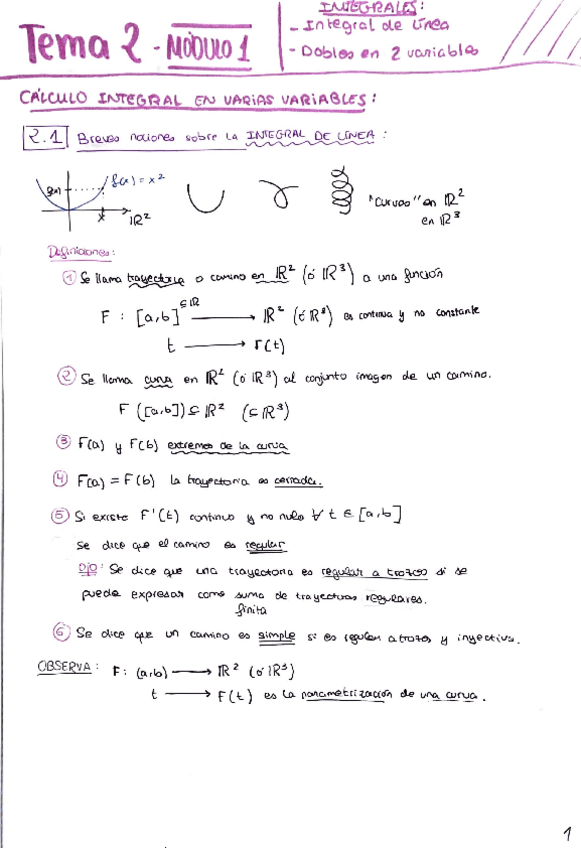 Tema 2 - MÓDULO 1
INTEGRALES:
- Integral de línea
- Dobles en 2 variables
CÁLCULO INTEGRAL EN VARIAS VARIABLES:
2.1 Breves nociones sobre la INTEGRAL DE LÍNEA:
f(x) = x²
f(x)
x
ℝ²
"curvas" en ℝ²
en ℝ³
Definiciones:
① Se llama trayectoria o camino en ℝ² (ó ℝ³) a una función
F : [a,b] ⊆ ℝ ⟶ ℝ² (ó ℝ³) es continua y no constante
t ⟶ F(t)
② Se llama curva en ℝ² (ó ℝ³) al conjunto imagen de un camino.
F ([a,b]) ⊆ ℝ² (⊆ ℝ³)
③ F(a) y F(b) extremos de la curva
④ F(a) = F(b) la trayectoria es cerrada.
⑤ Si existe F'(t) continua y no nula ∀ t ∈ [a,b]
se dice que el camino es regular
OJO: Se dice que una trayectoria es regular a trozos si se
puede expresar como suma de trayectorias regulares.
finita
⑥ Se dice que un camino es simple si es regular a trozos y inyectiva.
OBSERVA: F: (a,b) ⟶ ℝ² (ó ℝ³)
t ⟶ F(t) es la parametrización de una curva.
1